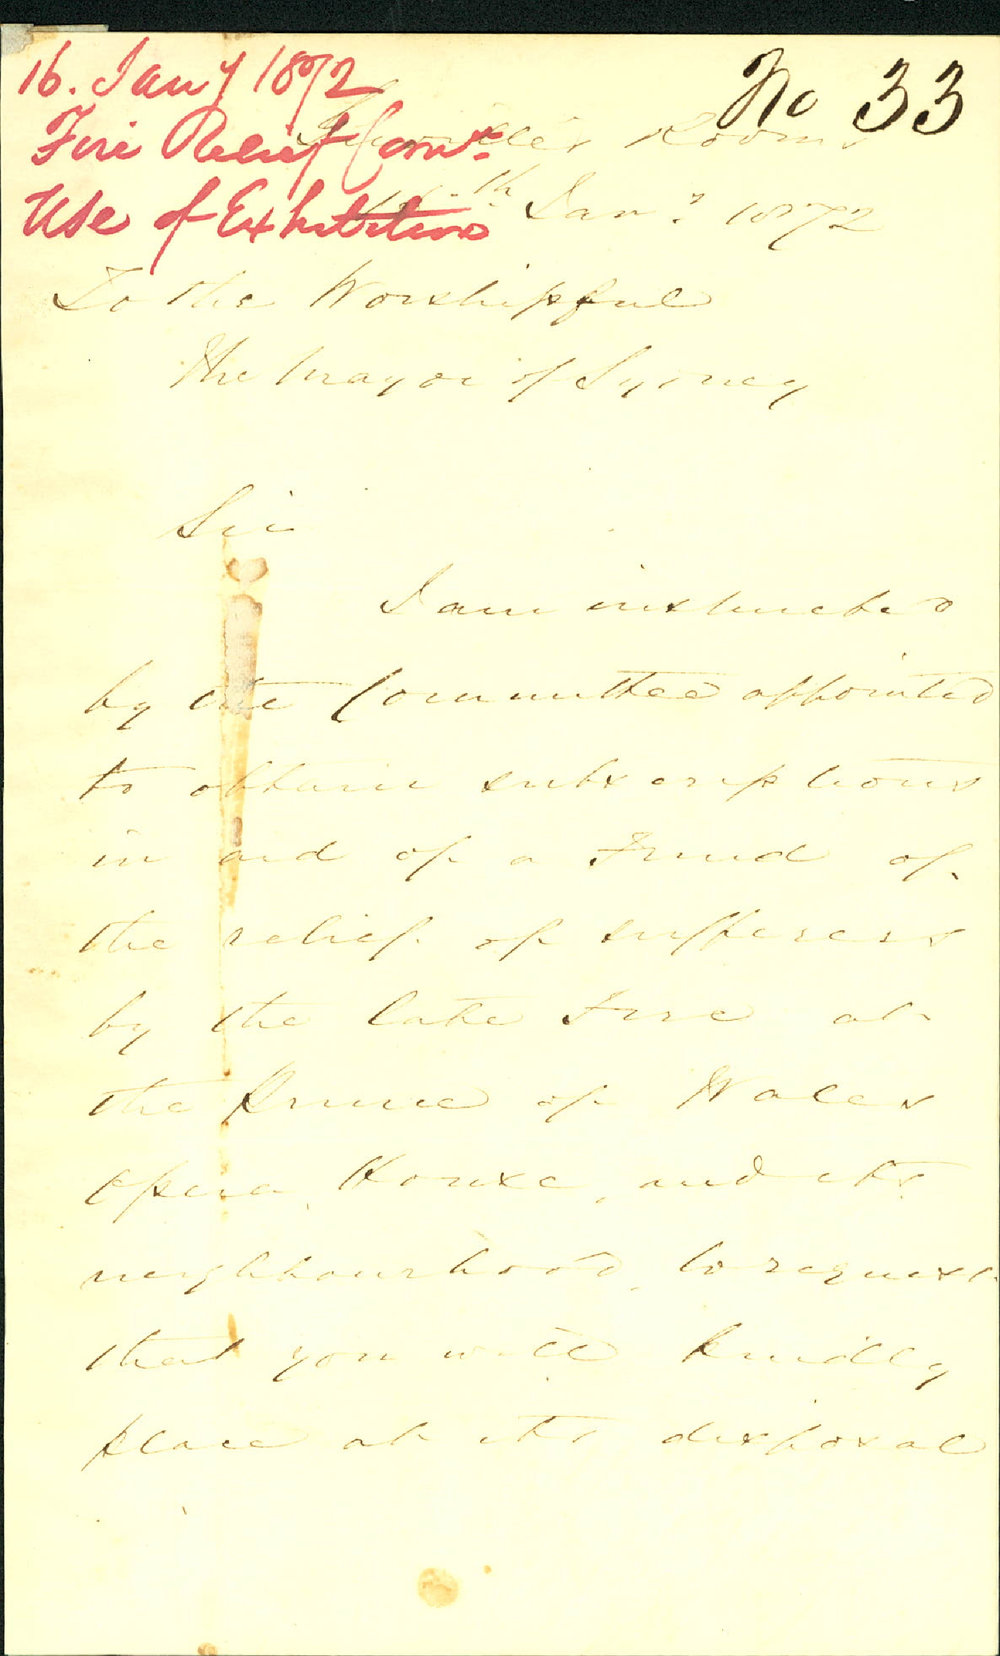 16. Jany 1872
Fire Relief Comee
Use of Exhibition
No 33
Rooms
th Jany. 1872
To the Worshipful
The Mayor of Sydney
Sir
I am instructed
by the Committee appointed
to obtain subscriptions
in aid of a Fund of
the relief of sufferers
by the late Fire at
the Prince of Wales
Opera House, and its
neighbourhood, to request
that you will kindly
place at its disposal